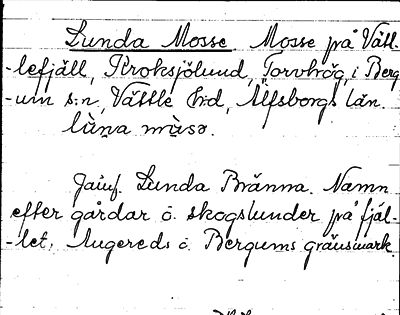 Lunda Mosse Mosse på Vätt-
-lefjäll, Kroksjölund, Torvhög, i Berg
-um s:n, Vättle h:d, Älfsborgs län.
lùna mùsə.
Jämf. Lunda Bränna. Namn
efter gårdar o. skogslunder på fjäl-
-let. Angereds o. Bergums gränsmark.